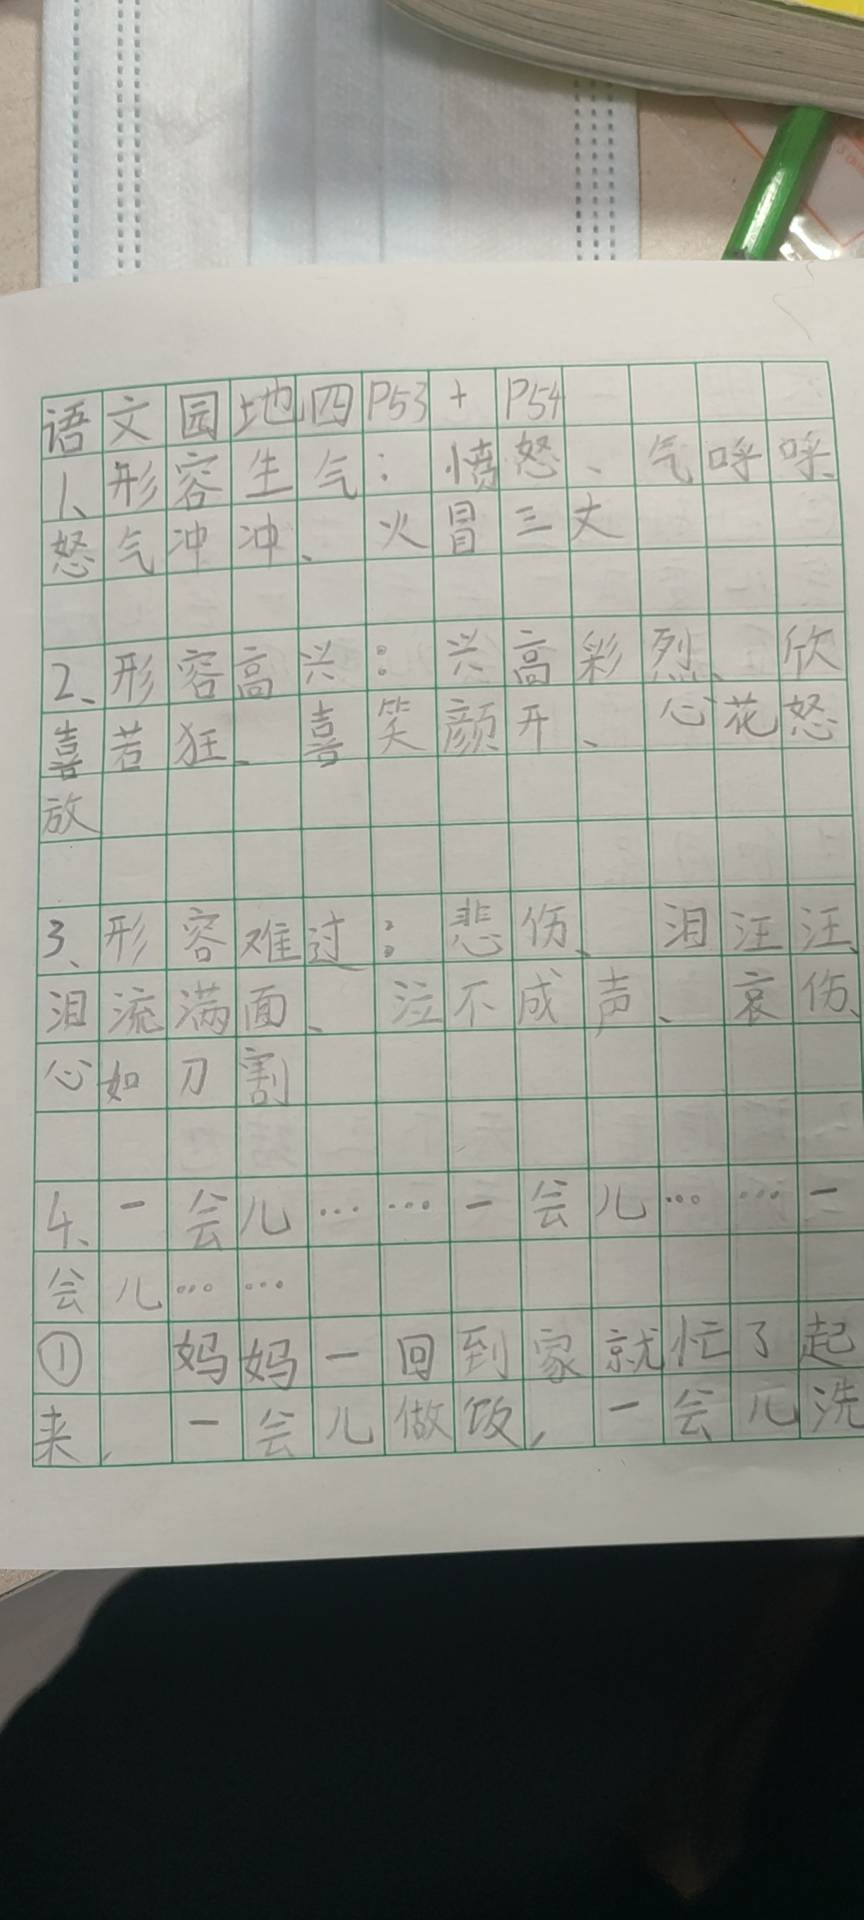 语文园地四P53+P54
1、形容生气：愤怒、气呼呼、
怒气冲冲、火冒三丈
2、形容高兴：兴高彩烈、欣
喜若狂、喜笑颜开、心花怒
放
3、形容难过：悲伤、泪汪汪、
泪流满面、泣不成声、哀伤、
心如刀割
4、一会儿……一会儿……一
会儿……
① 妈妈一回到家就忙了起
来，一会儿做饭，一会儿洗